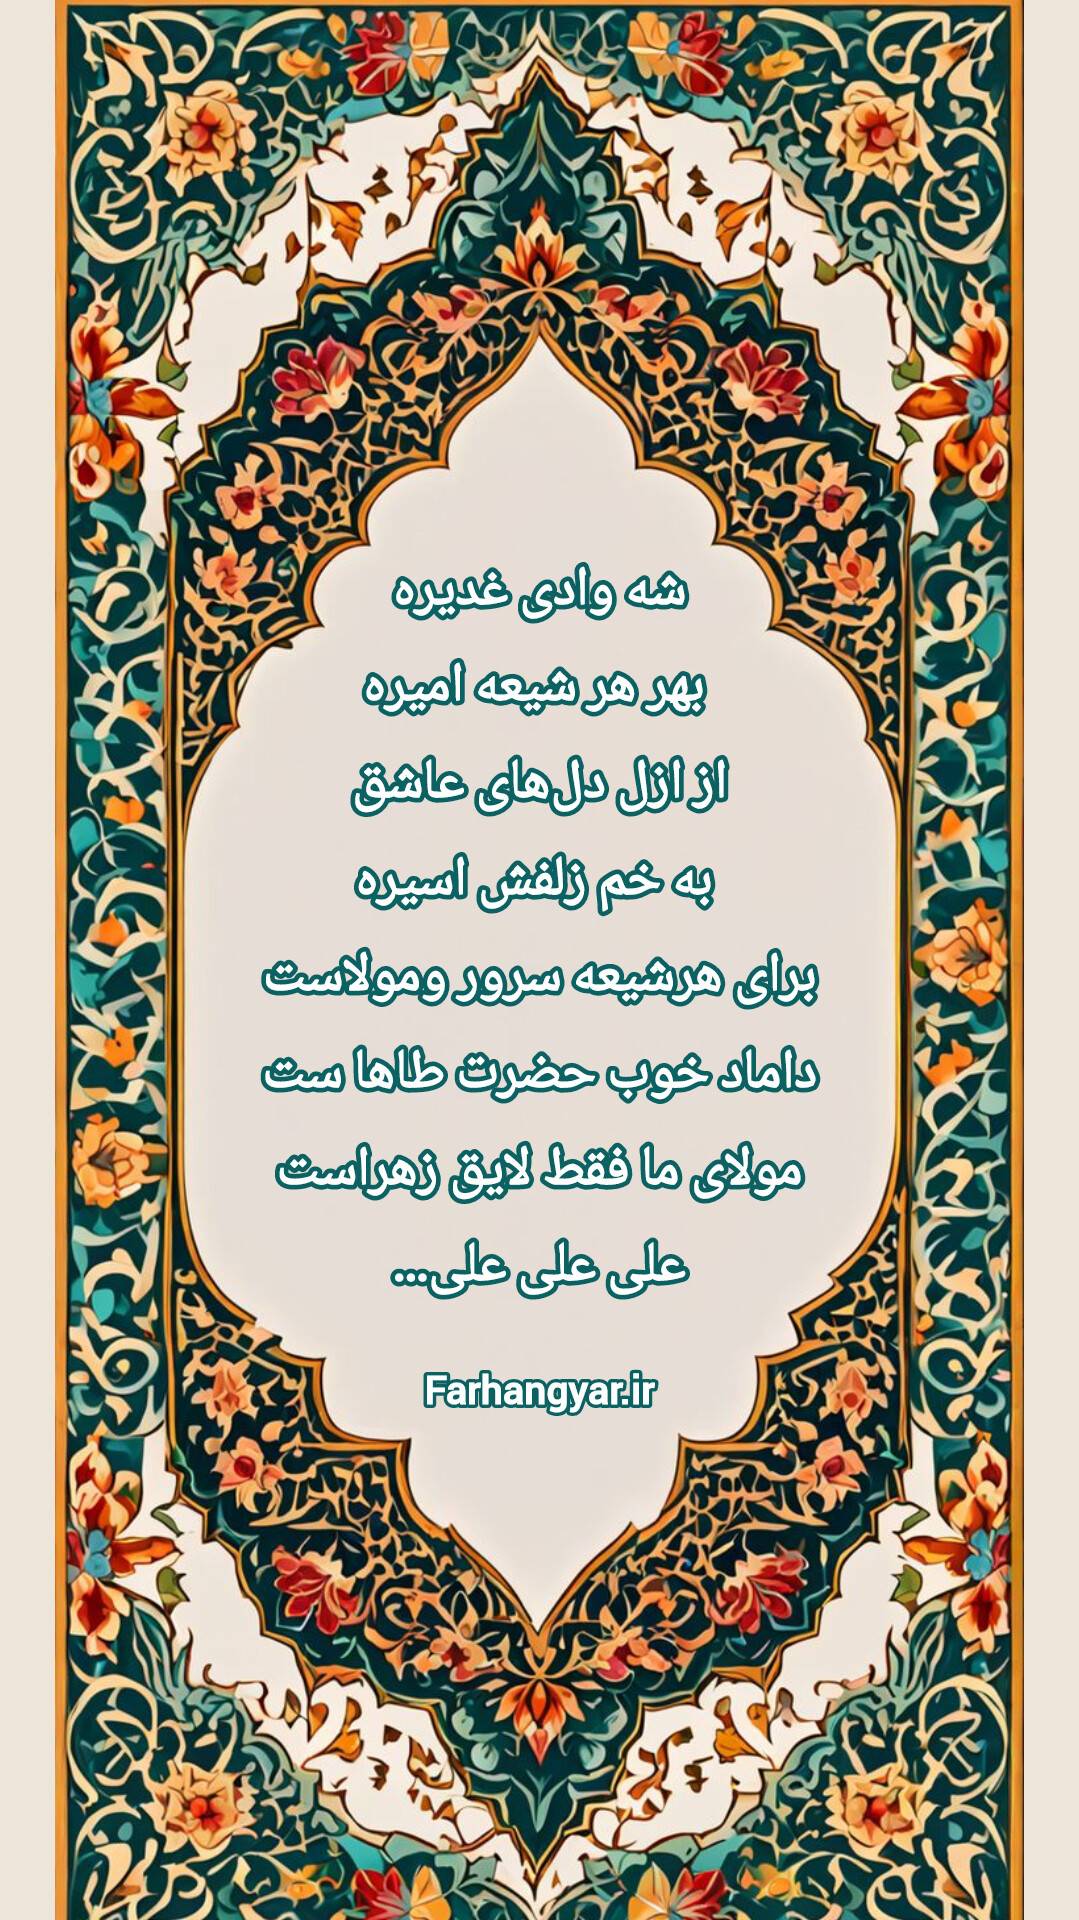 شه وادی غدیره
بهر هر شیعه امیره
از ازل دل‌های عاشق
به خم زلفش اسیره
برای هرشیعه سرور ومولاست
داماد خوب حضرت طاها ست
مولای ما فقط لایق زهراست
علی علی علی...
Farhangyar.ir